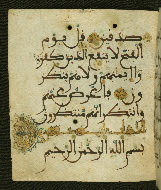 صدقين قل يوم
الفتح لا ينفع الذين كفر
وا ايمنهم ولا هم ينظر
ون فاعرض عنهم
وانتظر انهم منتظرون
بسم الله الرحمن الرحيم